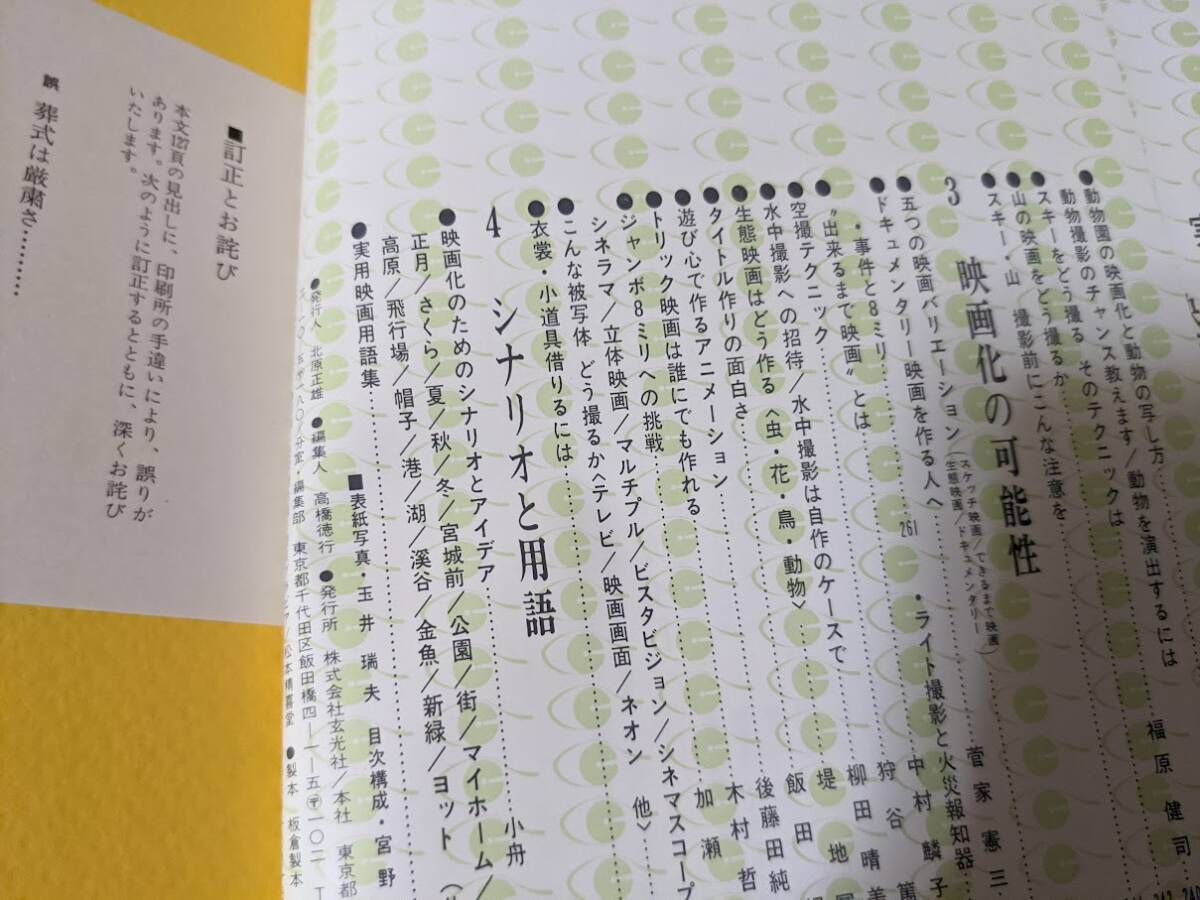 動物園の映画化と動物の写し方
動物撮影のチャンス教えます/動物を演出するには 福原 健司
●スキーをどう撮る そのテクニックは
●山の映画をどう撮るか
●スキー・山 撮影前にこんな注意を
3 映画化の可能性 (スケッチ映画/できるまで映画 生態映画/ドキュメンタリー) 菅家 憲三
●五つの映画バリエーション
●ドキュメンタリー映画を作る人へ 中村 麟子
・事件と8ミリ 261 ・ライト撮影と火災報知器
●“出来るまで映画”とは 柳田 晴美
●空撮テクニック 堤
●水中撮影への招待/水中撮影は自作のケースで 飯田
●生態映画はどう作る〈虫・花・鳥・動物〉 後藤田純
●タイトル作りの面白さ 木村 哲
●遊び心で作るアニメーション 加瀬
●トリック映画は誰にでも作れる
●ジャンボ8ミリへの挑戦
シネラマ/立体映画/マルチプル/ビスタビジョン/シネマスコープ
●こんな被写体 どう撮るか〈テレビ/映画画面/ネオン 他〉
●衣裳・小道具借りるには
4 シナリオと用語
●映画化のためのシナリオとアイデア 小舟
正月/さくら/夏/秋/冬/宮城前/公園/街/マイホーム/
高原/飛行場/帽子/港/湖/溪谷/金魚/新緑/ヨット
●実用映画用語集
■表紙写真・玉井 瑞夫 目次構成・宮野
●発行人 北原正雄 ●編集人 高橋徳行 ●発行所 株式会社玄光社/本社 東京都
編集部 東京都千代田区飯田橋四—一—五〒一〇二
松本精喜堂 ●製本 板倉製本
■訂正とお詫び
本文127頁の見出しに、印刷所の手違いにより、誤りが
あります。次のように訂正するとともに、深くお詫び
いたします。
誤 葬式は厳粛さ………